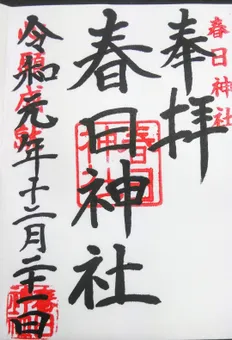 春日神社
奉拝
春日神社
春日
神社
心願成就
令和元年十二月二十一日